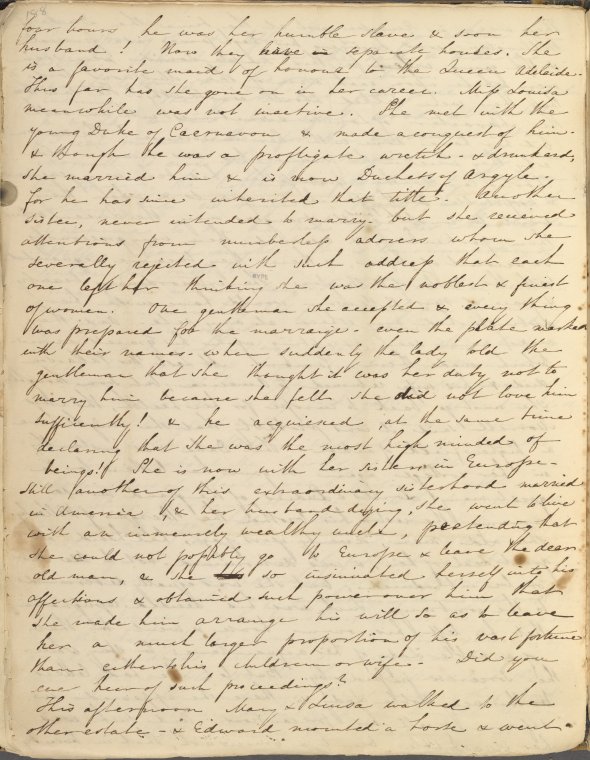 158
four hours he was her humble slave & soon her
husband! Now they have in separate houses. She
is a favorite maid of honour to the Queen Adelaide.
Thus far has she gone on in her career. Miss Louisa
meanwhile was not inactive. She met with the
young Duke of Caernavon & made a conquest of him.
& though he was a profligate wretch - & drunkard,
she married him & is now Duchess of Argyle.
for he has since inherited that title. Another
sister, never intended to marry. but she received
attentions from numberless adorers whom she
severally rejected with such address that each
one left her thinking she was the noblest & finest
of women. One gentleman she accepted & every thing
was prepared for the marraige - even the plate marked
with their names - when suddenly the lady told the
gentleman that she thought it was her duty not to
marry him because she felt she did not love him
sufficiently! & he acquiesced, at the same time
declaring that she was the most high minded of
beings!! She is now with her sisters in Europe -
Still another of this extraordinary sisterhood married
in America, & her husband dying, she went to live
with an immensely wealthy uncle, pretending that
she could not possibly go to Europe & leave the dear
old man, & she so insinuated herself into his
affections & obtained such power over him that
she made him arrange his will so as to leave
her a much larger proportion of his vast fortune
than either his children or wife - Did you
ever hear of such proceedings?
This afternoon Mary & Luisa walked to the
other estate - & Edward mounted a horse & went